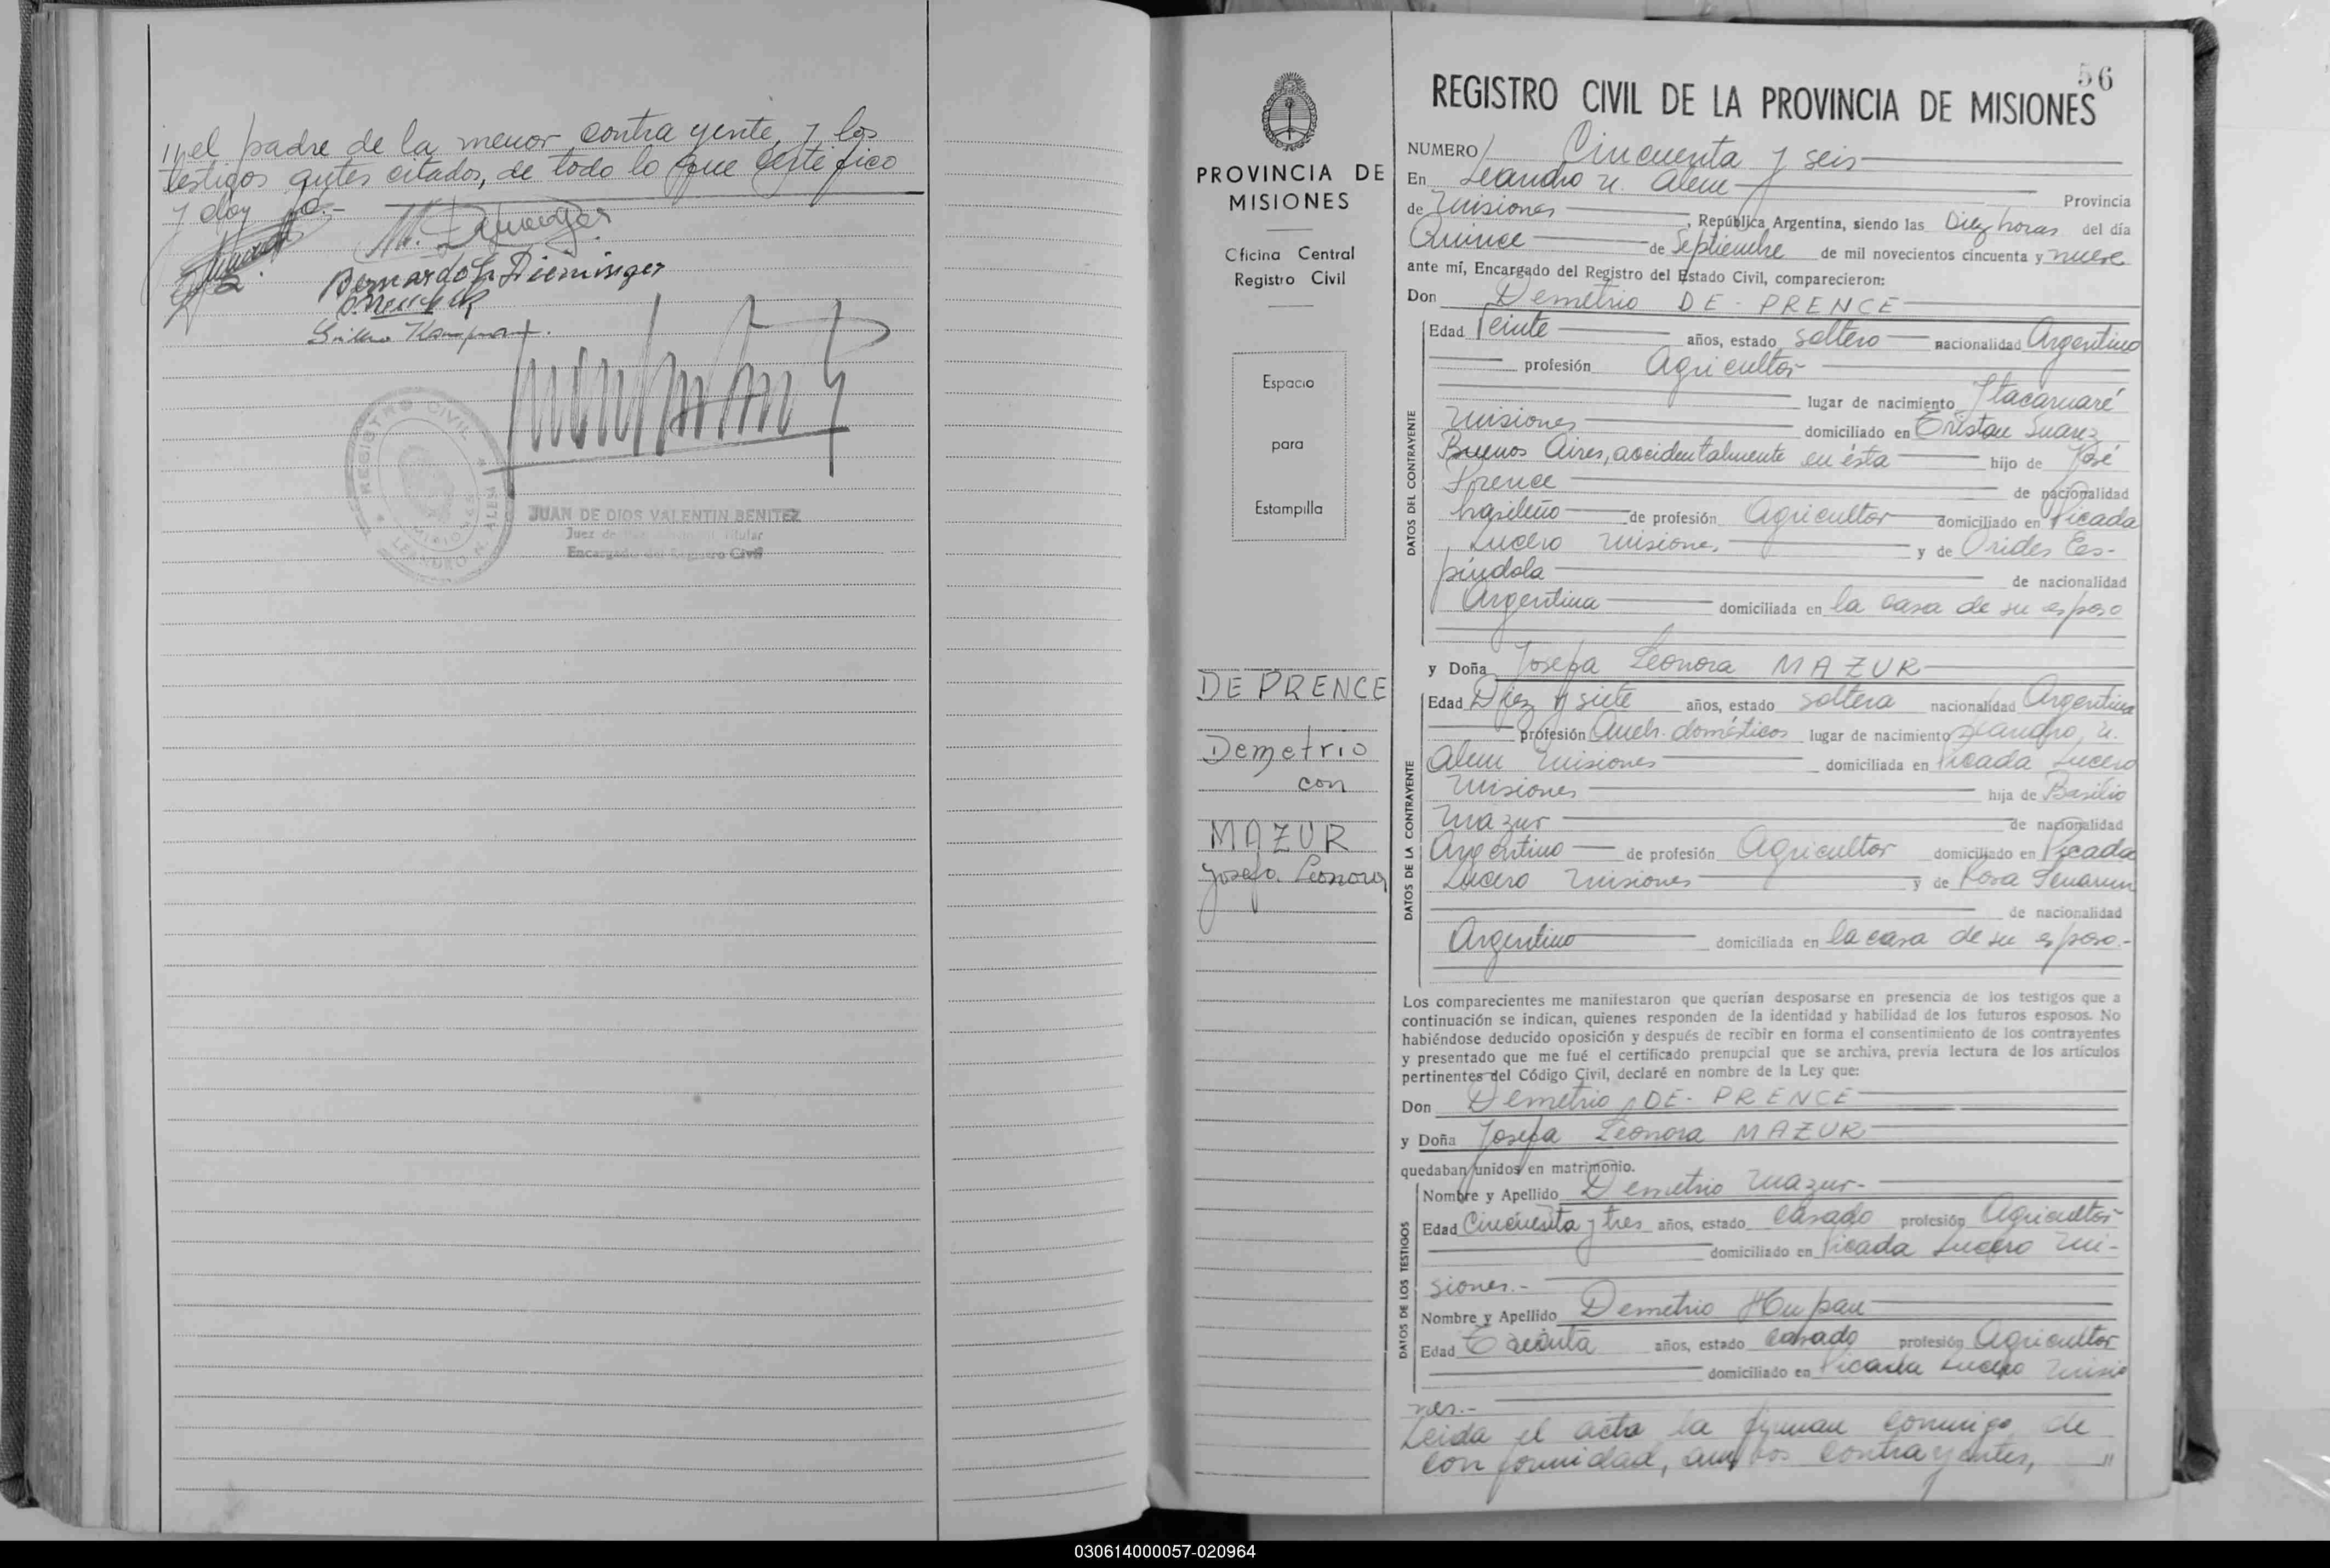 "el padre de la menor contrayente, y los
testigos antes citados, de todo lo que certifico
y doy fé.-
Bernardo
REGISTRO CIVIL
MISIONES
LEANDRO N. ALEM
JUAN DE DIOS VALENTIN BENITEZ
Juez de Paz Titular
Encargado del Registro Civil
PROVINCIA DE
MISIONES
Oficina Central
Registro Civil
Espacio
para
Estampilla
DE PRENCE
Demetrio
con
MAZUR
Josefa Leonora
56
REGISTRO CIVIL DE LA PROVINCIA DE MISIONES
NUMERO Cincuenta y seis
En Leandro N. Alem Provincia
de Misiones, República Argentina, siendo las Diez horas del día
Quince de Septiembre de mil novecientos cincuenta y nueve
ante mí, Encargado del Registro del Estado Civil, comparecieron:
Don Demetrio DE-PRENCE
DATOS DEL CONTRAYENTE
Edad Veinte años, estado soltero nacionalidad Argentino
profesión Agricultor
lugar de nacimiento Itacaruaré
Misiones domiciliado en Tristan Suarez
Buenos Aires, accidentalmente en ésta hijo de José
Prence de nacionalidad
brasileño de profesión Agricultor domiciliado en Picada
Lucero Misiones y de Orides Es-
pindola de nacionalidad
Argentina domiciliada en la casa de su esposo
y Doña Josefa Leonora MAZUR
DATOS DE LA CONTRAYENTE
Edad Diez y siete años, estado soltera nacionalidad Argentina
profesión Queh. domésticos lugar de nacimiento Leandro N.
Alem Misiones domiciliada en Picada Lucero
Misiones hija de Basilio
Mazur de nacionalidad
Argentino de profesión Agricultor domiciliado en Picada
Lucero Misiones y de Rosa
de nacionalidad
Argentino domiciliada en la casa de su esposo.-
Los comparecientes me manifestaron que querían desposarse en presencia de los testigos que a
continuación se indican, quienes responden de la identidad y habilidad de los futuros esposos. No
habiéndose deducido oposición y después de recibir en forma el consentimiento de los contrayentes
y presentado que me fué el certificado prenupcial que se archiva, previa lectura de los artículos
pertinentes del Código Civil, declaré en nombre de la Ley que:
Don Demetrio DE-PRENCE
y Doña Josefa Leonora MAZUR
quedaban unidos en matrimonio.
DATOS DE LOS TESTIGOS
Nombre y Apellido Demetrio Mazur-
Edad Cincuenta y tres años, estado casado profesión Agricultor
domiciliado en Picada Lucero Mi-
siones.-
Nombre y Apellido Demetrio Hupan
Edad Treinta años, estado casado profesión Agricultor
domiciliado en Picada Lucero Misio
nes.-
Leida el acta la firman conmigo de
conformidad, ambos contrayentes, "
030614000057-020964